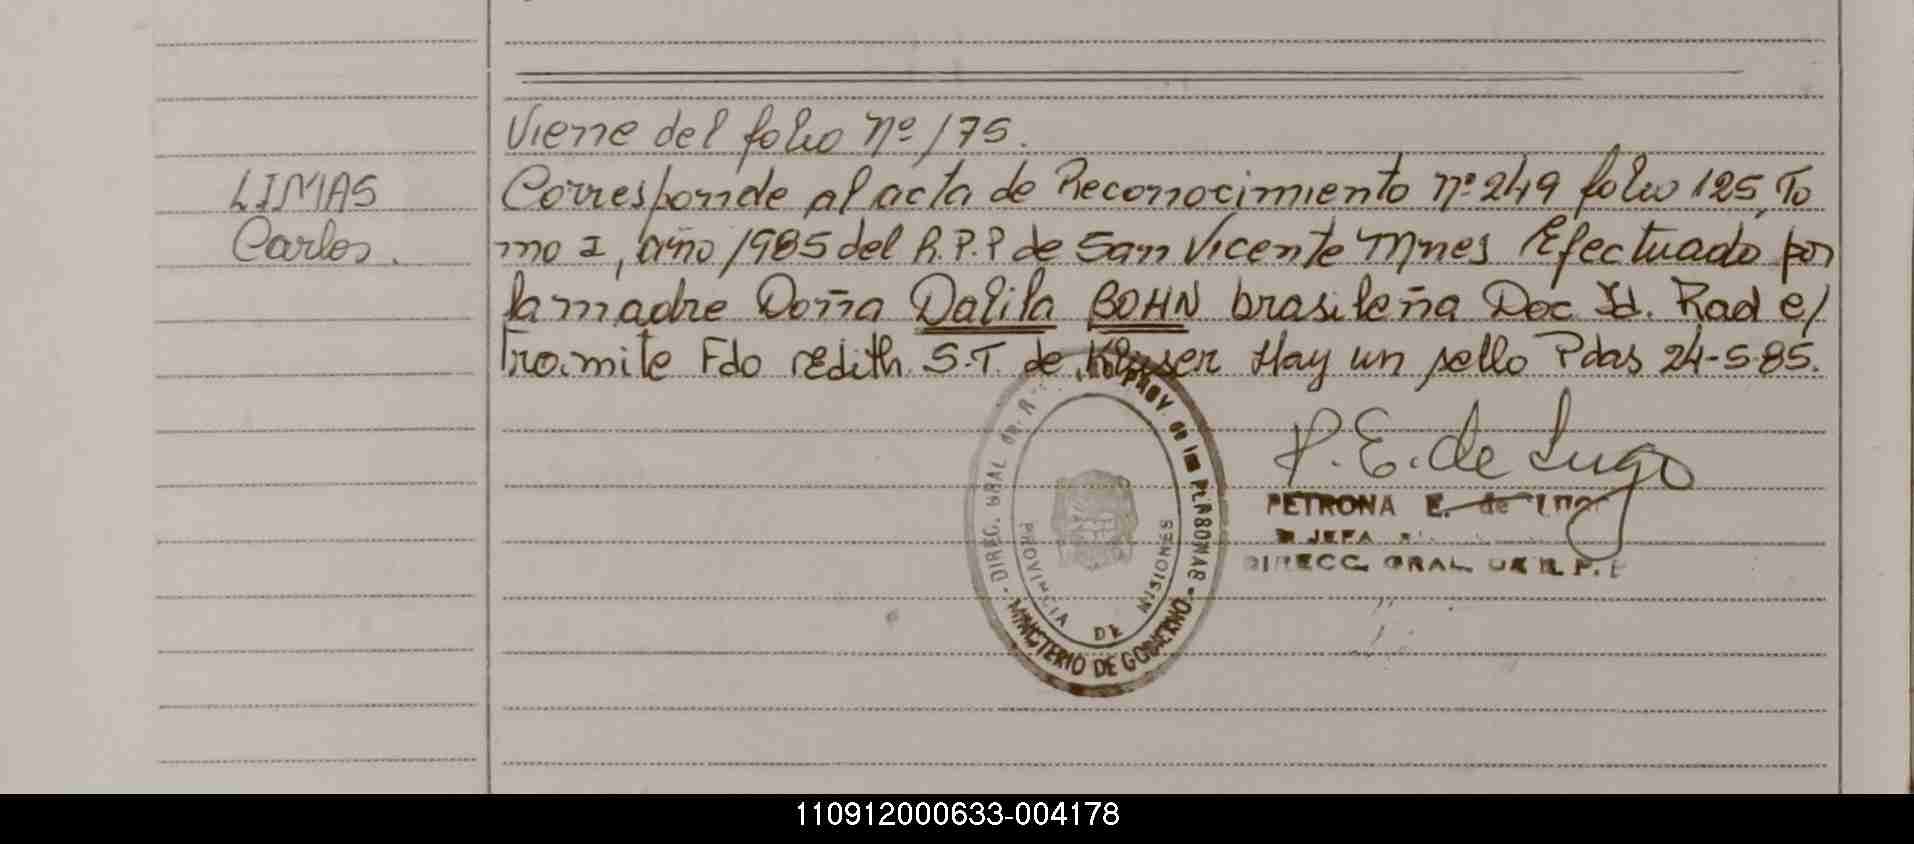 Viene del folio nº 175.
LIMAS
Carlos.
Corresponde al acta de Reconocimiento nº 249 folio 125, To
mo I, año 1985 del R.P.P de San Vicente Mnes Efectuado por
la madre Doña Dalila BOHN brasileña Doc Id. Rad el
Tramite Fdo Edith S.T. de Hay un sello Pdas 24-5-85.
P.E. de Lugo
PETRONA E. de
JEFA
DIRECC. GRAL. DE R. P.
DIREC. GRAL de R PROV. de las PERSONAS
MINISTERIO DE GOBIERNO
PROVINCIA DE MISIONES
110912000633-004178